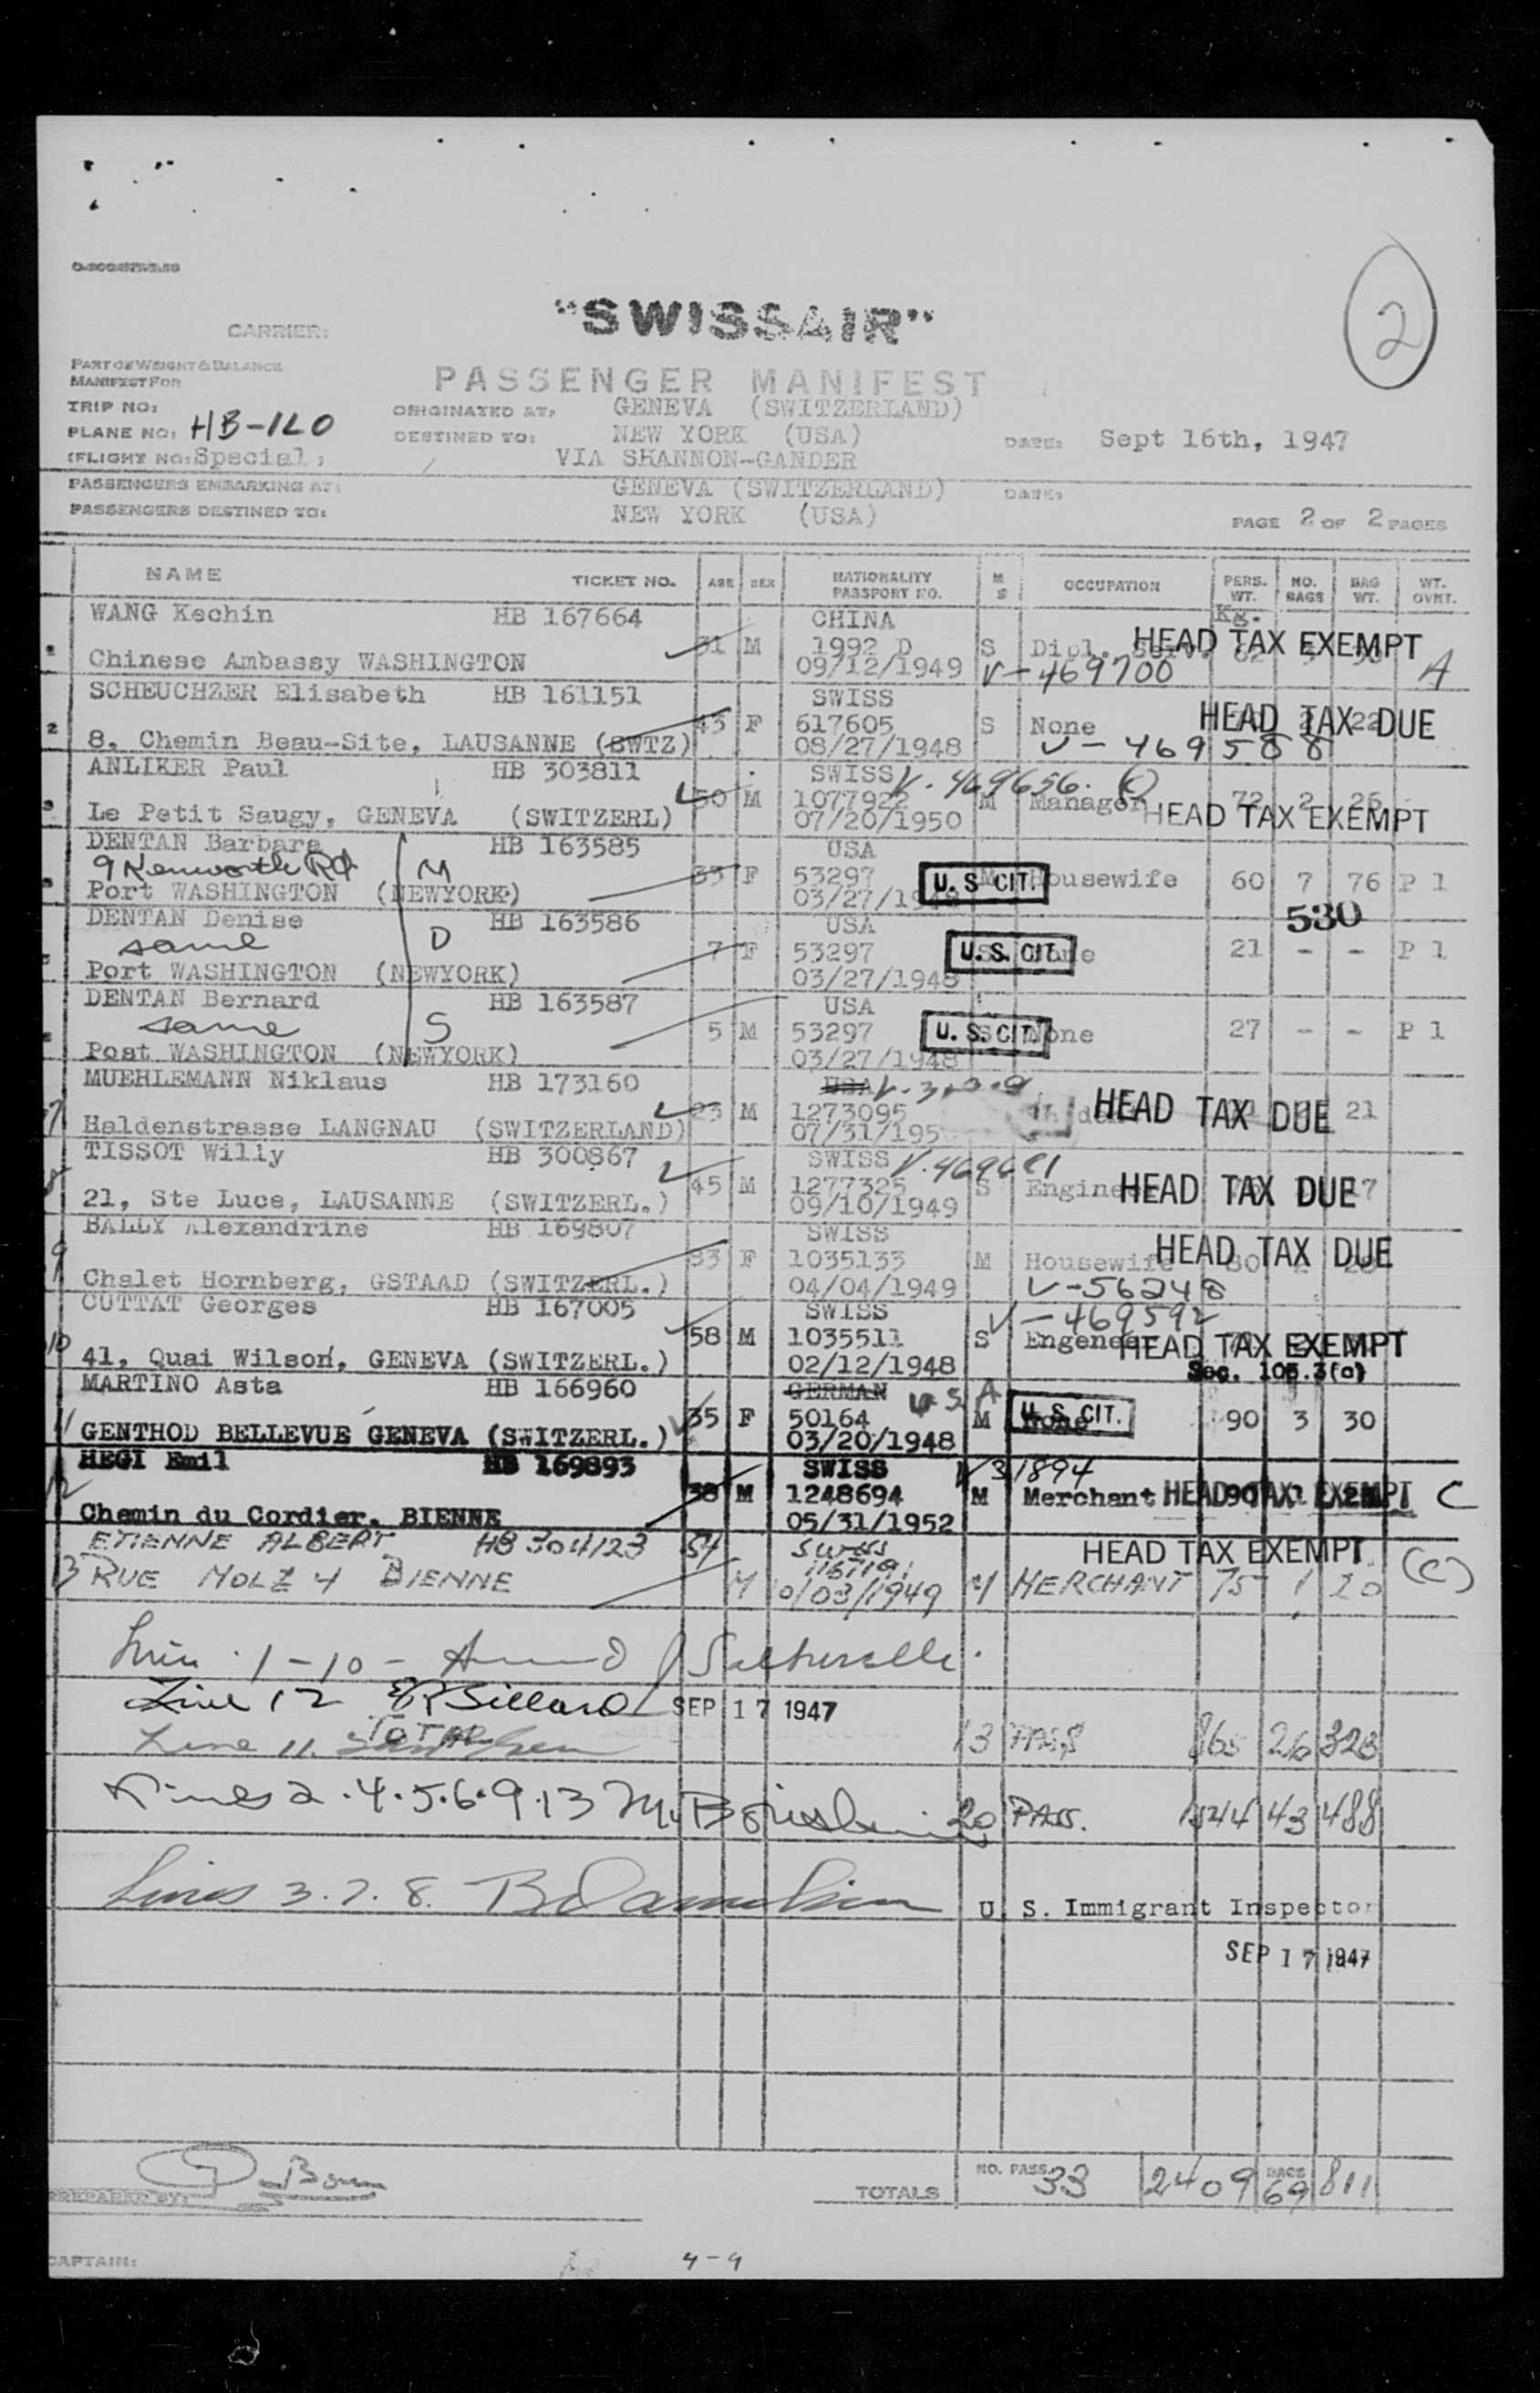 "SWISSAIR"
2
CARRIER:
PART OF WEIGHT & BALANCE
MANIFEST FOR
PASSENGER MANIFEST
TRIP NO:
ORIGINATED AT: GENEVA (SWITZERLAND)
PLANE NO: HB-ILO
DESTINED TO: NEW YORK (USA)
DATE: Sept 16th, 1947
(FLIGHT NO: Special)
VIA SHANNON-GANDER
PASSENGERS EMBARKING AT: GENEVA (SWITZERLAND) DATE:
PASSENGERS DESTINED TO: NEW YORK (USA)
PAGE 2 OF 2 PAGES
NAME TICKET NO. AGE SEX NATIONALITY PASSPORT NO. M S OCCUPATION PERS. WT. NO. BAGS BAG WT. WT. OVHT.
Kg.
WANG Kechin HB 167664 CHINA
31 M 1992 D S Dipl. Serv. HEAD TAX EXEMPT
Chinese Ambassy WASHINGTON 09/12/1949 V-469700 A
SCHEUCHZER Elisabeth HB 161151 SWISS
2 43 F 617605 S None HEAD TAX DUE 22
8, Chemin Beau-Site, LAUSANNE (SWTZ) 08/27/1948 V-469588
ANLIKER Paul HB 303811 SWISS V-469656. (C)
50 M 1077922 M Manager 72 2 26
Le Petit Saugy, GENEVA (SWITZERL) 07/20/1950 HEAD TAX EXEMPT
DENTAN Barbara HB 163585 USA
9 Kenworth Rd M 33 F 53297 M Housewife U.S. CIT. 60 7 76 P 1
Port WASHINGTON (NEWYORK) 03/27/1948
530
DENTAN Denise HB 163586 USA
same D 7 F 53297 S None U.S. CIT. 21 - - P 1
Port WASHINGTON (NEWYORK) 03/27/1948
DENTAN Bernard HB 163587 USA
same S 5 M 53297 S None U.S. CIT. 27 - - P 1
Post WASHINGTON (NEWYORK) 03/27/1948
MUEHLEMANN Niklaus HB 173160 USA
7 23 M 1273095 HEAD TAX DUE 21
Haldenstrasse LANGNAU (SWITZERLAND) 07/31/195
TISSOT Willy HB 300867 SWISS
8 45 M 1277325 S Engineer HEAD TAX DUE
21, Ste Luce, LAUSANNE (SWITZERL.) 09/10/1949
BALLY Alexandrine HB 169807 SWISS
9 33 F 1035133 M Housewife HEAD TAX DUE
Chalet Hornberg, GSTAAD (SWITZERL.) 04/04/1949 V-56248
CUTTAT Georges HB 167005 SWISS V-469592
10 58 M 1035511 S Engeneer HEAD TAX EXEMPT
41, Quai Wilson, GENEVA (SWITZERL.) 02/12/1948 Sec. 105.3(c)
MARTINO Asta HB 166960 GERMAN U S A
11 35 F 50164 M None U.S. CIT. 90 3 30
GENTHOD BELLEVUE GENEVA (SWITZERL.) 03/20/1948
HEGI Emil HB 169893 SWISS V 31894
12 38 M 1248694 M Merchant 90 HEAD TAX EXEMPT C
Chemin du Cordier, BIENNE 05/31/1952
ETIENNE ALBERT HB 304123 54 SWISS HEAD TAX EXEMPT (C)
13 RUE MOLZ 4 BIENNE M 10/03/1949 M MERCHANT 75 1 20
1-10
Line 12 SEP 17 1947
Line 11. TOTAL 13 PASS 865 26 323
Lines 2.4.5.6.9.13 20 PASS. 1544 43 488
Lines 3.7.8. U. S. Immigrant Inspector
SEP 17 1947
PREPARED BY:
TOTALS NO. PASS. 33 2409 BAGS 69 811
CAPTAIN:
4-9